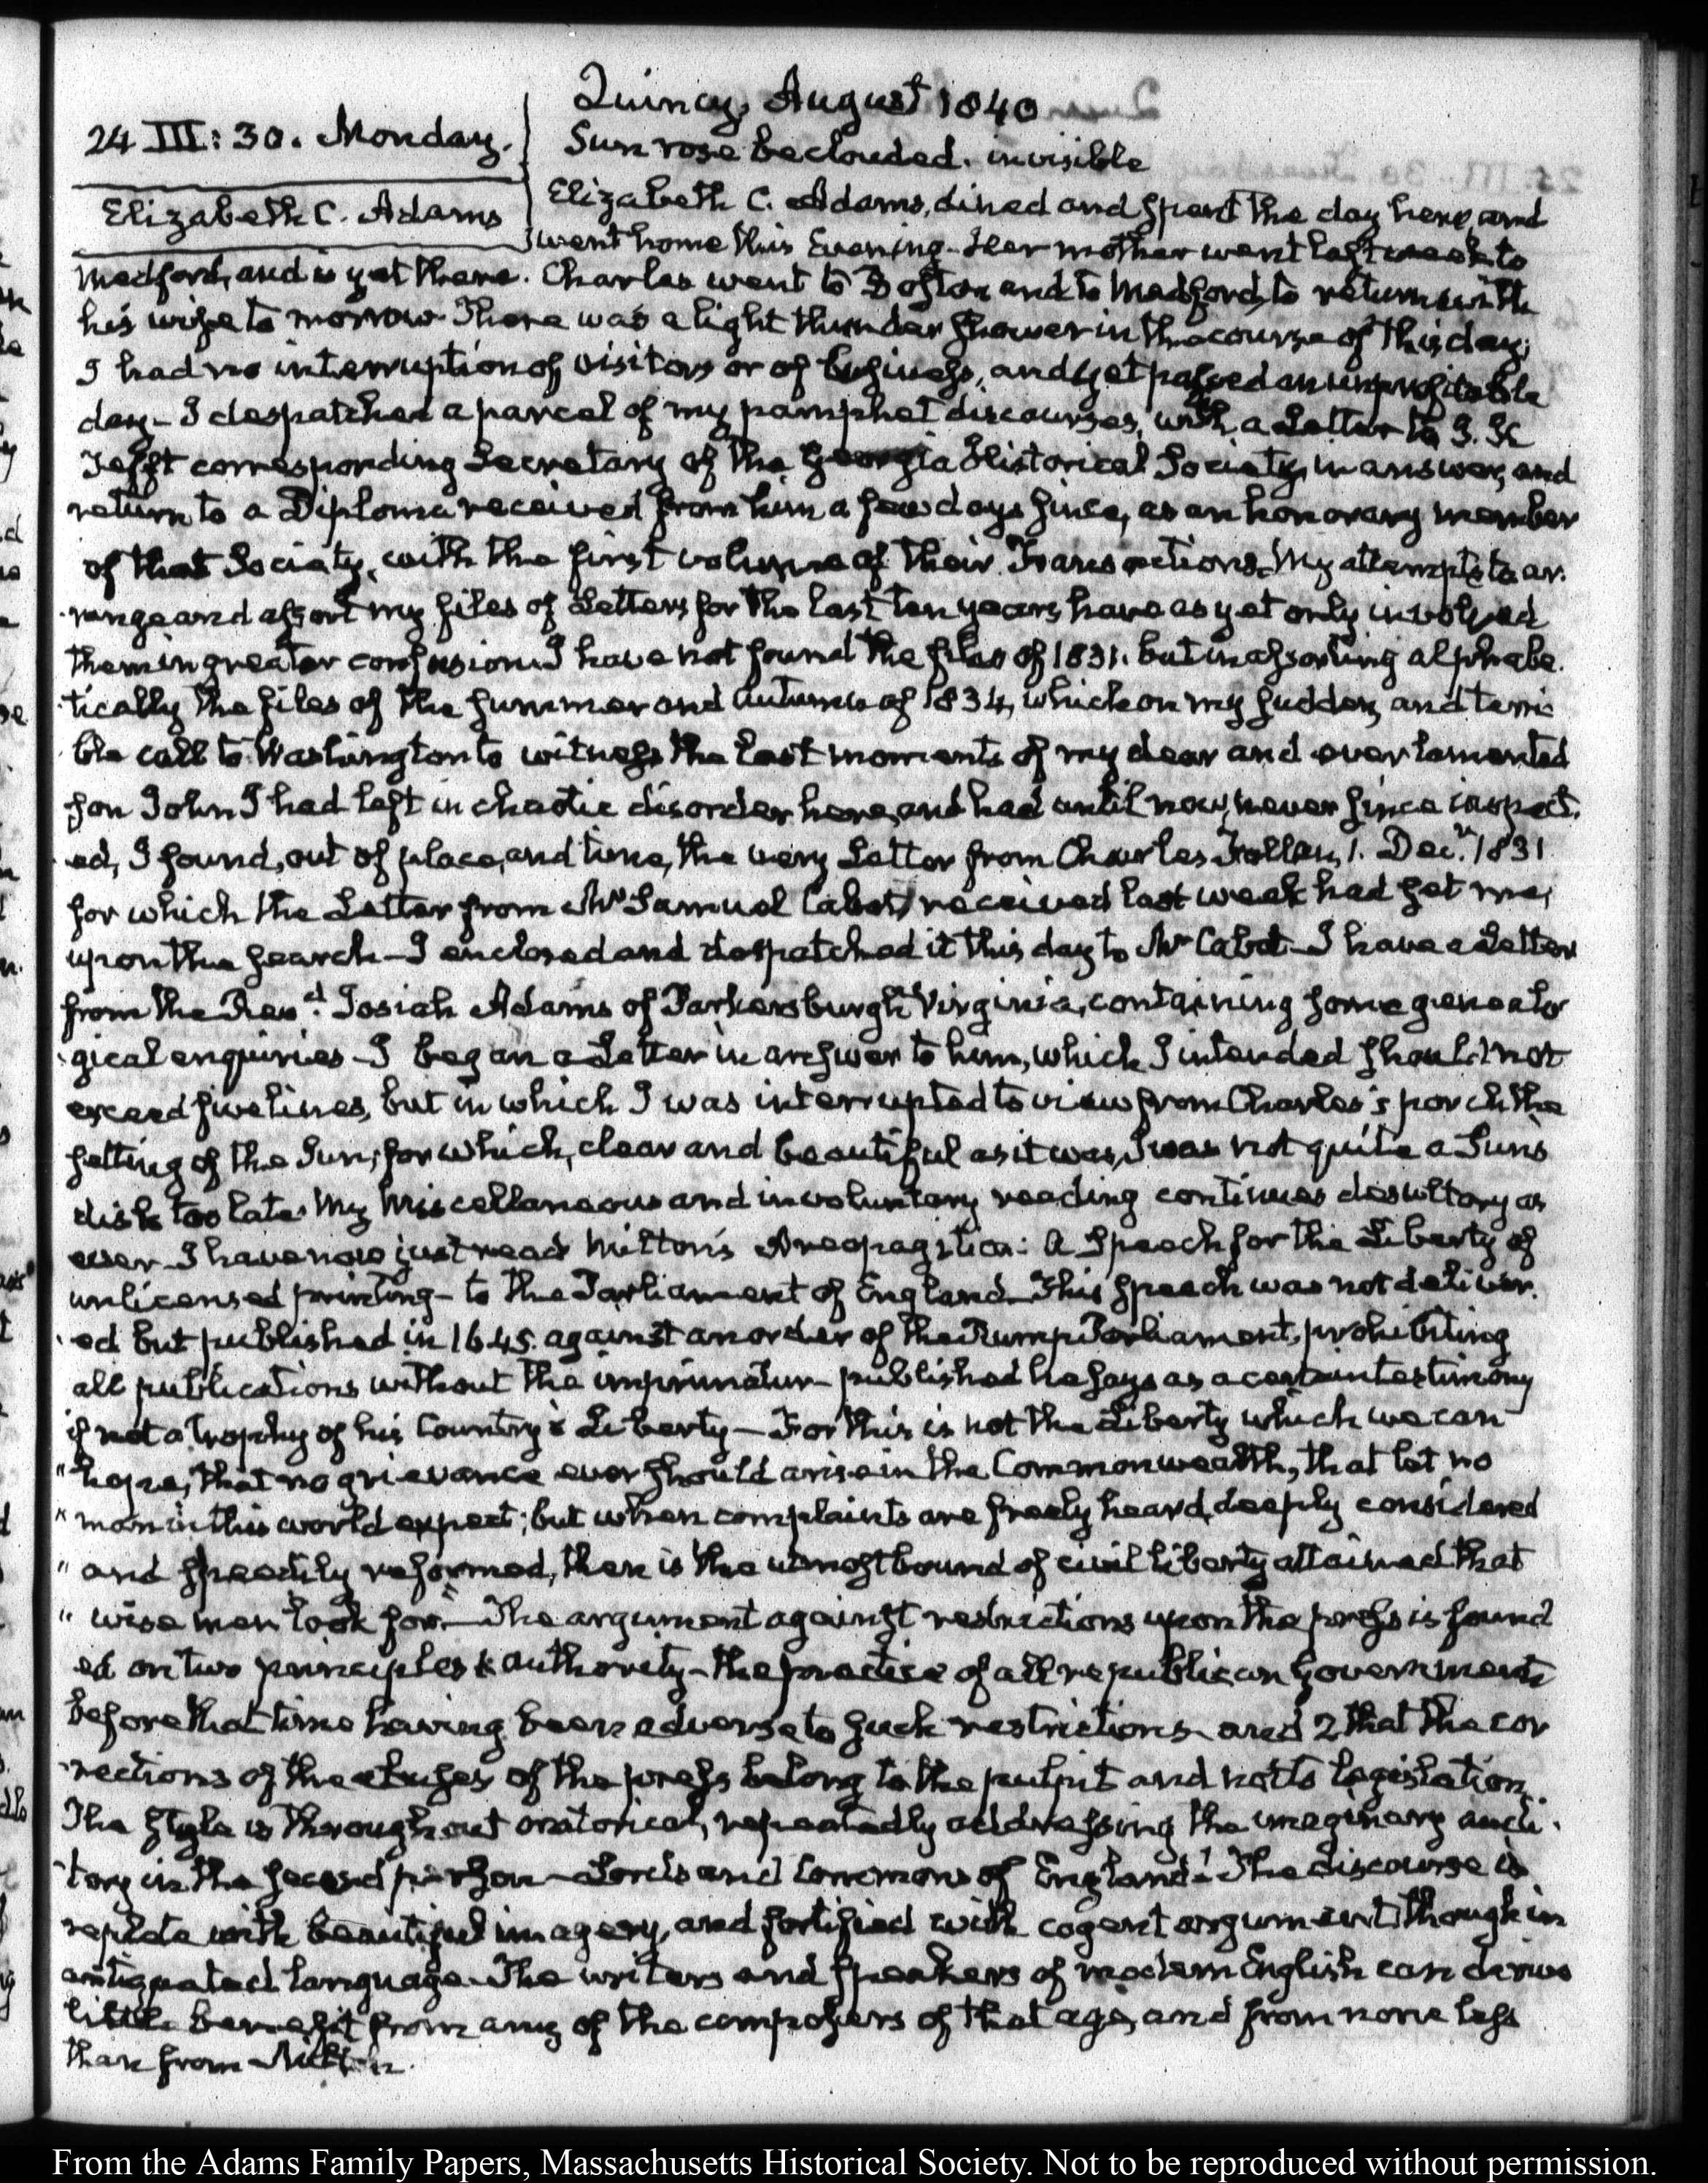 Quincy, August 1840
24 III: 30. Monday.
Sun rose beclouded. invisible
Elizabeth C. Adams
Elizabeth C. Adams, dined and spent the day here, and
went home this Evening. Her mother went last week to
Medford, and is yet there. Charles went to Boston and to Medford, to return with
his wife to morrow. There was a light thunder shower in the course of this day;
I had no interruption of visitors or of business, and yet passed an unprofitable
day - I despatched a parcel of my pamphet discourses, with a Letter to I. K
Tefft corresponding Secretary of the Georgia Historical Society, in answer, and
return to a Diploma received from him a few days since, as an honorary member
of that Society, with the first volume of their Transactions. My attempts to ar-
range and assort my files of Letters for the last ten years, have as yet only involved
them in greater confusion. I have not found the files of 1831. but in assorting alphabe-
tically the files of the summer and Autumn of 1834, which on my sudden, and terri-
ble call to Washington to witness the last moments of my dear and ever lamented
son John I had left in chaotic disorder here, and had until now, never since inspect-
ed, I found, out of place, and time, the very Letter from Charles Follen, 1. Decr. 1831
for which the Letter from Mr Samuel Cabot, received last week had set me,
upon the search - I enclosed and despatched it this day to Mr Cabot - I have a Letter
from the Revd. Josiah Adams of Parkersburgh Virginia, containing some genealo-
gical enquiries - I began a Letter in answer to him, which I intended should not
exceed five lines, but in which I was interrupted to view from Charles's porch the
setting of the Sun; for which, clear and beautiful as it was, I was not quite a Sun's
disk too late. My miscellaneous and involuntary reading continues desultory as
ever - I have now just read Milton's Areopagitica: A Speech for the Liberty of
unlicensed printing - to the Parliament of England - This speech was not deliver-
ed but published in 1645. against an order of the Rump Parliament, prohibiting
all publications without the imprimatur - published he says as a certain testimony
if not a trophy of his Country's Liberty - For this is not the Liberty which we can
"hope, that no grievance ever should arise in the Commonwealth, that let no
"man in this world expect; but when complaints are freely heard, deeply considered
"and speedily reformed, then is the utmost bound of civil liberty attained that
"wise men look for." - The argument against restrictions upon the press is found-
ed on two principles 1. authority - the practice of all republican Governments
before that time having been adverse to such restrictions and 2 that the cor-
rections of the abuses of the press belong to the pulpit and not to legislation.
The style is throughout oratorical, repeatedly addressing the imaginary audi-
tory in the second person - Lords and Commons of England! The discourse is
replete with beautiful imagery, and fortified with cogent argument, though in
antiquated language. The writers and speakers of modern English can derive
little benefit from any of the composers of that age, and from none less
than from Milton.
From the Adams Family Papers, Massachusetts Historical Society. Not to be reproduced without permission.